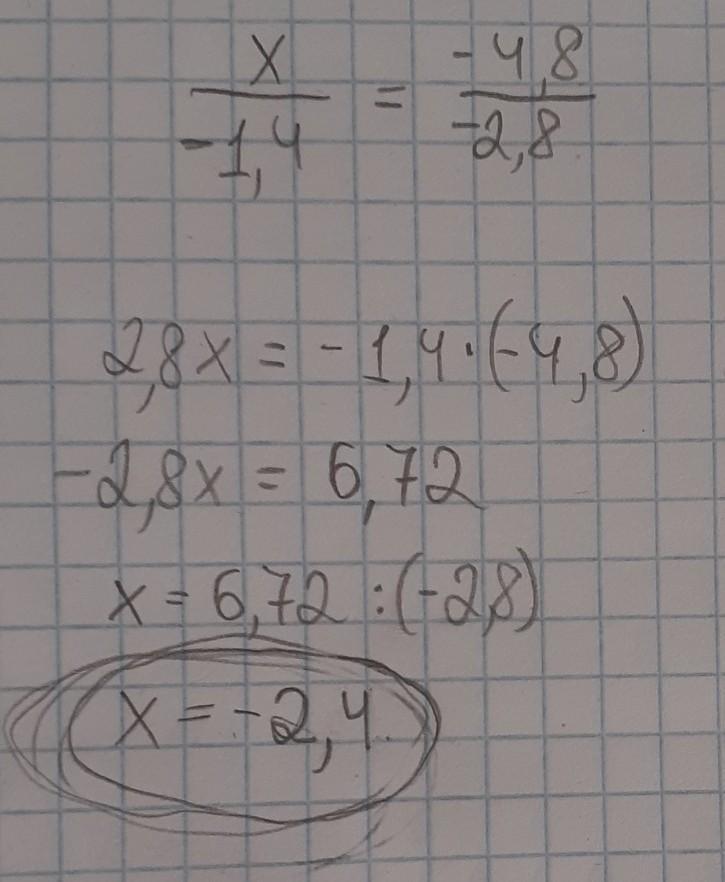 x/-1,4 = -4,8/-2,8
2,8x = -1,4·(-4,8)
-2,8x = 6,72
x = 6,72 :(-2,8)
x = -2,4